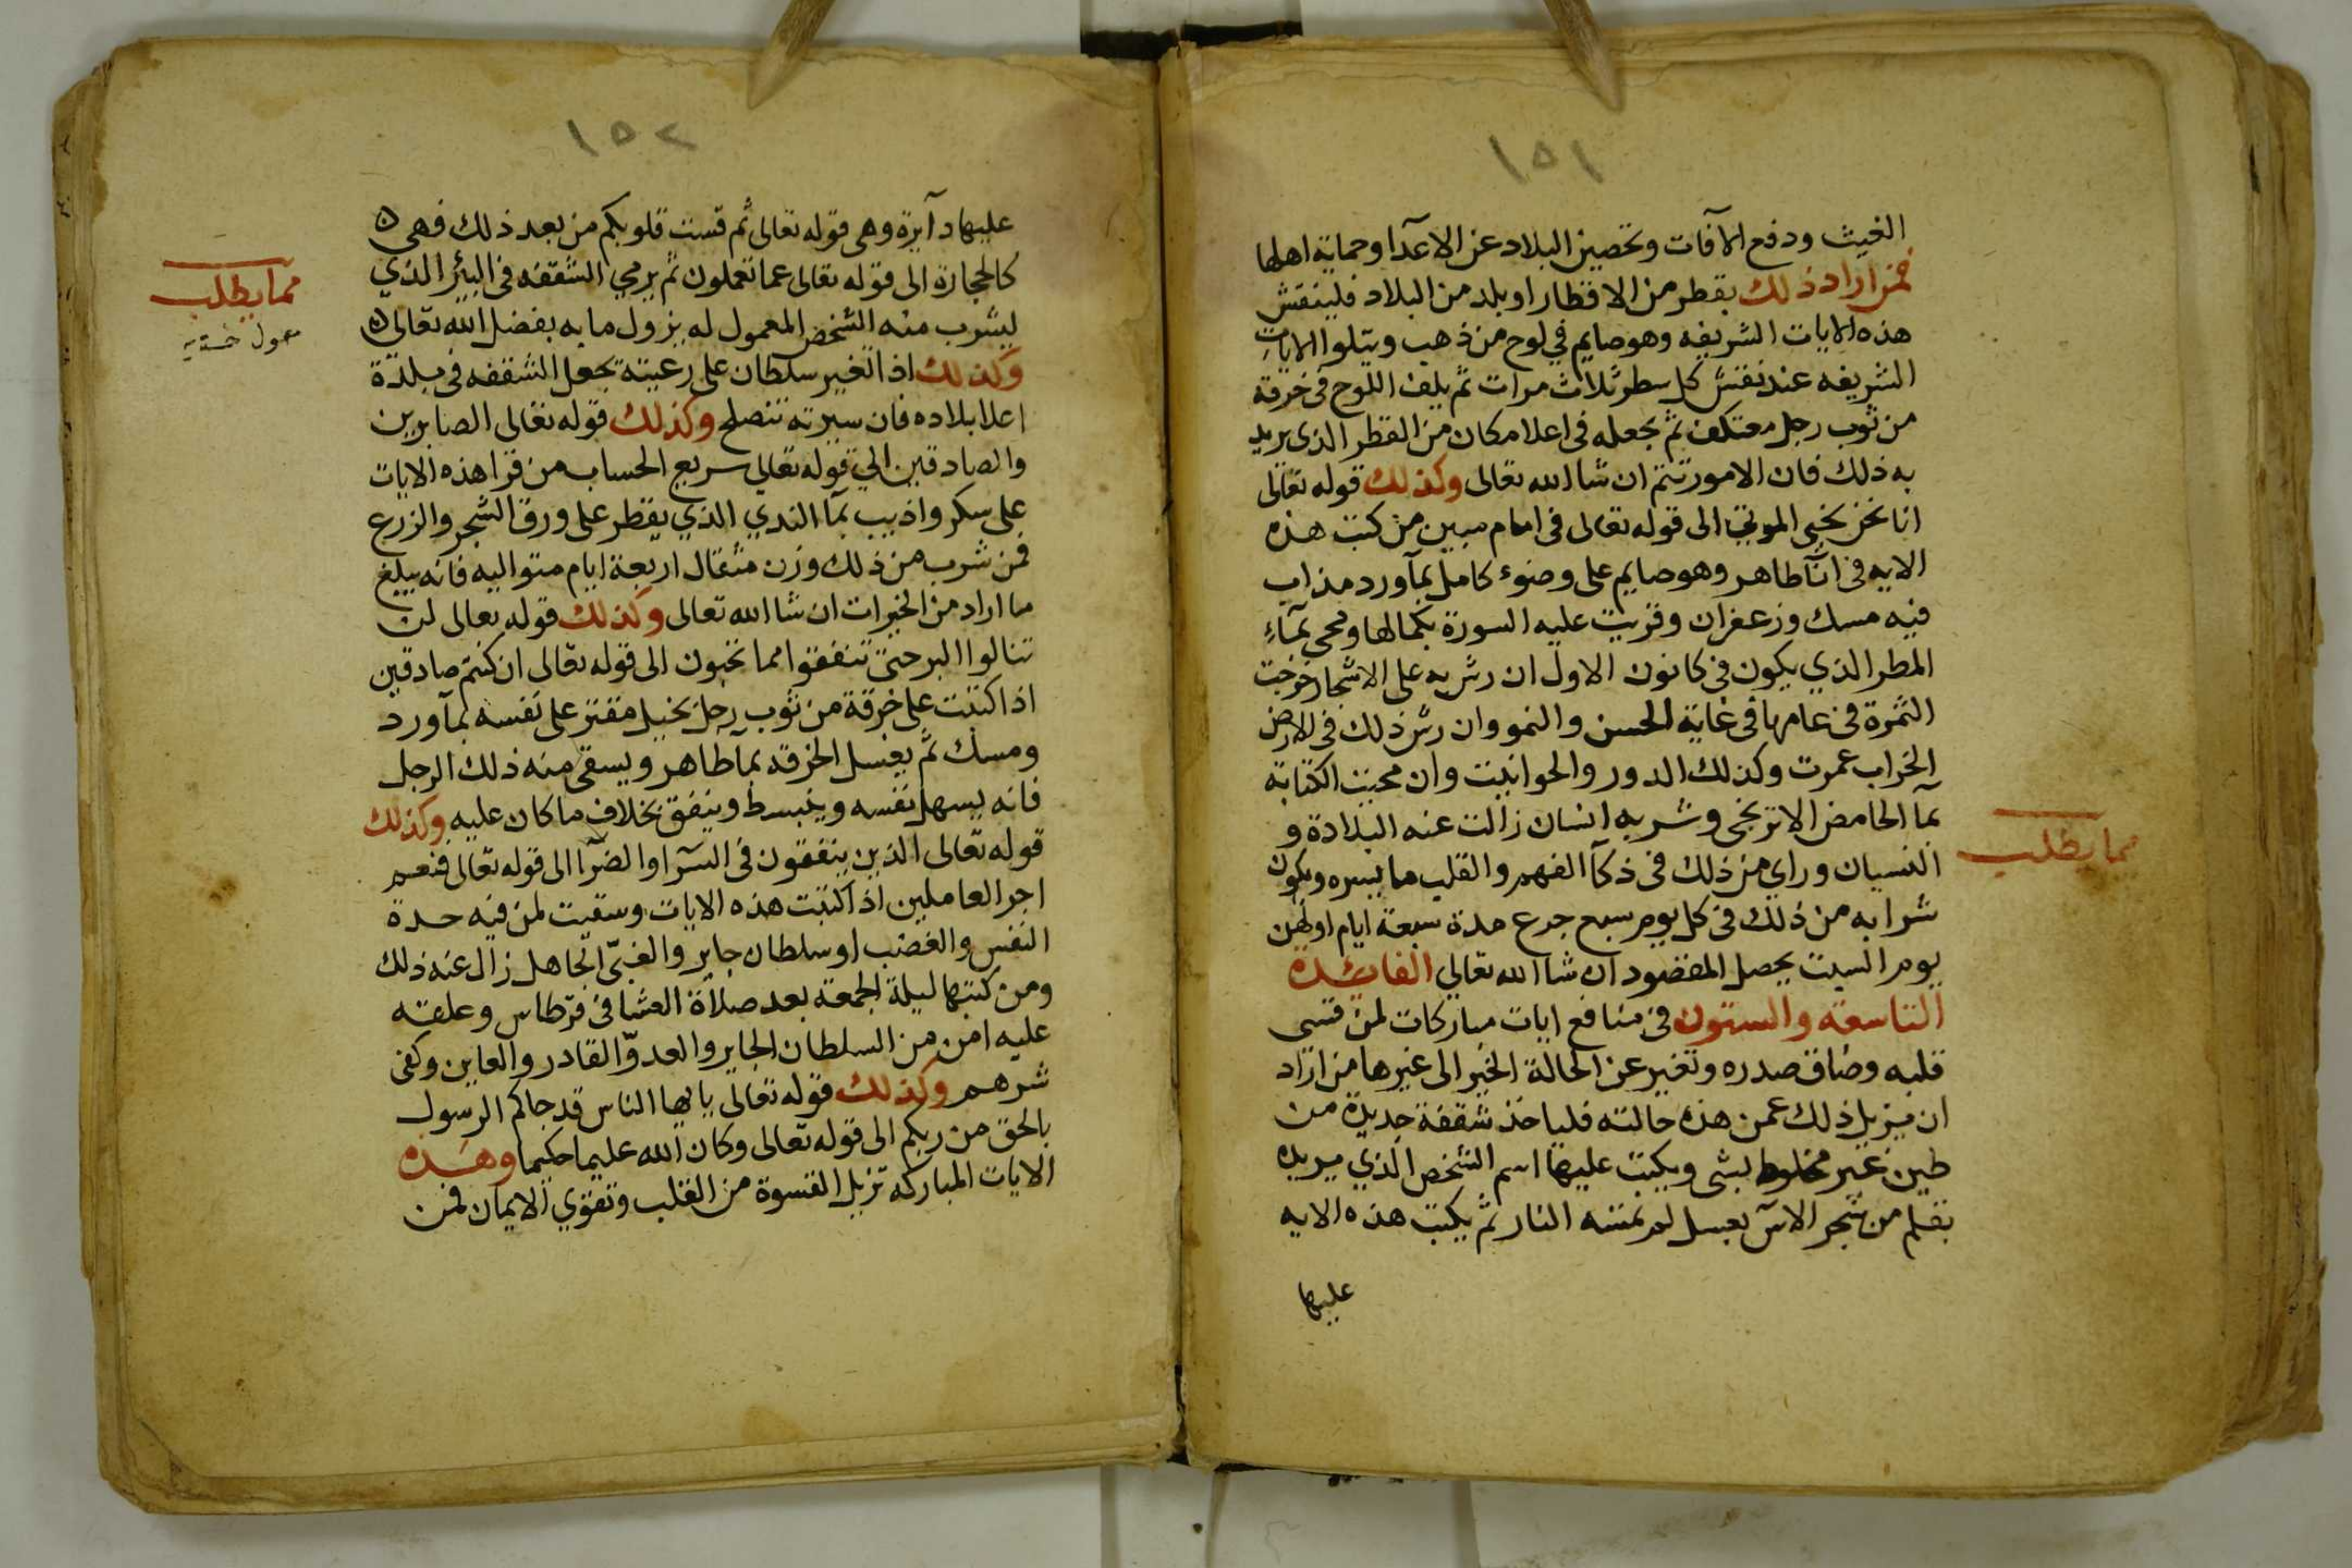 ١٥١
الغيث ودفع الآفات وتحصين البلاد عن الاعدآ وحماية اهلها
فمن اراد ذلك بقطر من الاقطار او بلد من البلاد فلينقش
هذه الايات الشريفه وهو صايم في لوح من ذهب ويتلوا الايات
الشريفه عند نقش كل سطر ثلاث مرات ثم يلف اللوح فى خرقة
من ثوب رجل معتكف ثم يجعله فى اعلا مكان من القطر الذى يريد
به ذلك فان الامور تتم ان شا الله تعالى وكذلك قوله تعالى
انا نحن نحيى الموتى الى قوله تعالى فى امام مبين من كتب هذه
الايه فى انآ طاهر وهو صايم على وضوء كامل بمآ ورد مذاب
فيه مسك وزعفران وقريت عليه السورة بكمالها ومحى بمآء
المطر الذي يكون فى كانون الاول ان رش به على الاشجار خرجت
الثمرة فى عامها فى غاية الحسن والنمو وان رش ذلك فى الارض
الخراب عمرت وكذلك الدور والحوانيت وان محيت الكتابة
بمآ الحامض الاترنجى وشربه انسان زالت عنه البلادة و
النسيان وراي من ذلك فى ذكآ الفهم والقلب ما يسره ويكون
مما يطلب
شرابه من ذلك فى كل يوم سبع جرع مدة سبعة ايام اولهن
يوم السبت يحصل المقصود ان شا الله تعالي الفائدة
التاسعة والستون فى منافع ايات مباركات لمن قسى
قلبه وضاق صدره وتغير عن الحالة الخير الى غيرها من اراد
ان يزيل ذلك عمن هذه حالته فلياخذ شقفة جديدة من
طين غير مخلوط بشى ويكتب عليها اسم الشخص الذي يريده
بقلم من شجر الاس بعسل لم تمسه النار ثم يكتب هذه الايه
عليها
١٥٢
عليها دآيرة وهى قوله تعالى ثم قست قلوبكم من بعد ذلك فهى
كالحجارة الى قوله تعالى عما تعملون ثم يرمي الشقفه فى البئر الذي
مما يطلب
ليشرب منه الشخص المعمول له يزول ما به بفضل الله تعالى
وكذلك اذا تغير سلطان على رعيته تجعل الشقفه فى بلدة
اعلا بلاده فان سيرته تنصلح وكذلك قوله تعالى الصابرين
والصادقين الي قوله تعالي سريع الحساب من قرا هذه الايات
على سكر واذيب بمآ الندي الذي يقطر على ورق الشجر والزرع
فمن شرب من ذلك وزن مثقال اربعة ايام متواليه فانه يبلغ
ما اراد من الخيرات ان شا الله تعالى وكذلك قوله تعالى لن
تنالوا البر حتى تنفقوا مما تحبون الى قوله تعالى ان كنتم صادقين
اذا كتبت على خرقة من ثوب رجل بخيل مقتر على نفسه بمآ ورد
ومسك ثم يغسل الخرقه بما طاهر ويسقى منه ذلك الرجل
فانه يسهل نفسه وينبسط وينفق بخلاف ما كان عليه وكذلك
قوله تعالى الذين ينفقون فى السرآ والضرآ الى قوله تعالى فنعم
اجر العاملين اذا كتبت هذه الايات وسقيت لمن فيه حدة
النفس والغضب او سلطان جاير والغبىّ الجاهل زال عنه ذلك
ومن كتبها ليلة الجمعة بعد صلاة العشا فى قرطاس وعلقه
عليه امن من السلطان الجاير والعدوّ القادر والعاين وكفى
شرهم وكذلك قوله تعالى يا ايها الناس قد جاكم الرسول
بالحق من ربكم الى قوله تعالى وكان الله عليما حكيما وهذه
الايات المباركه تزيل القسوة من القلب وتقوي الايمان فمن